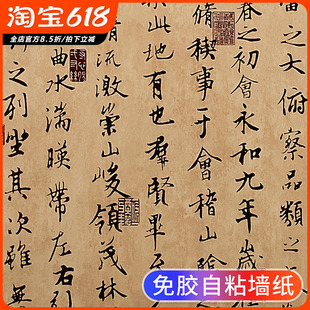 淘宝618
全店官方8.5折/拍下立减
宙之大俯察品類之
春之初會永和九年歲
脩稧事于會稽山陰
此地有也羣賢畢至
清流激崇山峻領茂林
曲水滿暎帶左右引
之列坐其次雖無
免胶自粘墙纸